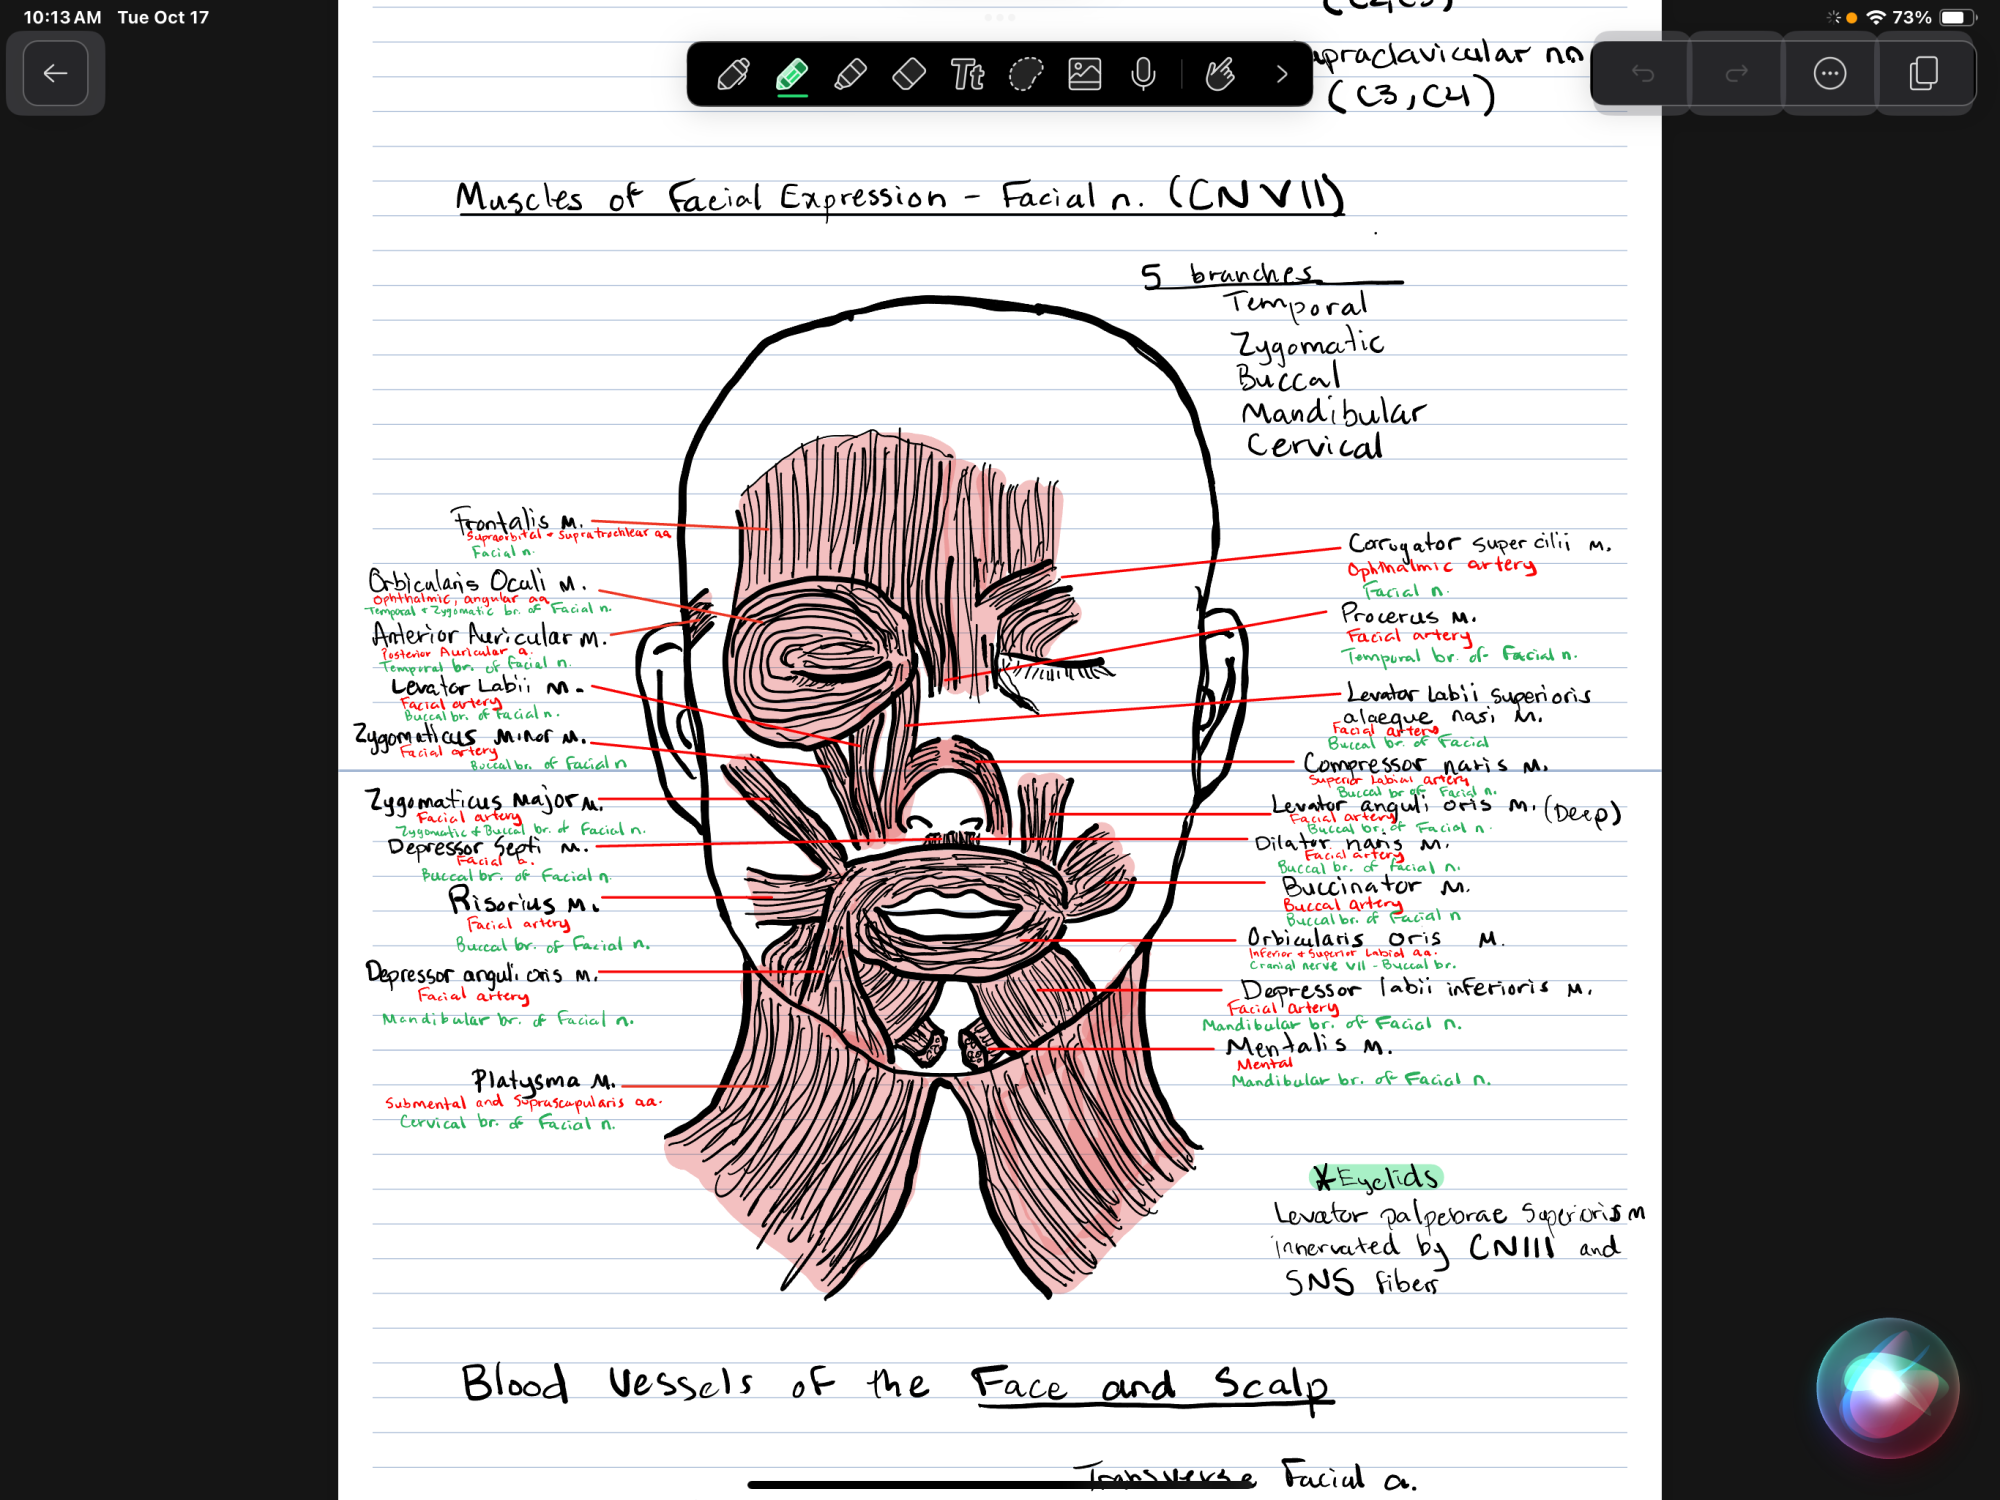 10:13 AM Tue Oct 17
73%
Tt
supraclavicular nn
(C3, C4)
Muscles of Facial Expression - Facial n. (CN VII)
5 branches
Temporal
Zygomatic
Buccal
Mandibular
Cervical
Frontalis M.
Supraorbital + Supratrochlear aa
Facial n.
Orbicularis Oculi M.
Ophthalmic, angular aa
Temporal + Zygomatic br. of Facial n.
Anterior Auricular M.
Posterior Auricular a.
Temporal br. of Facial n.
Levator Labii M.
Facial artery
Buccal br. of Facial n.
Zygomaticus Minor M.
Facial artery
Buccal br. of Facial n
Zygomaticus Major M.
Facial artery
Zygomatic & Buccal br. of Facial n.
Depressor Septi M.
Facial a.
Buccal br. of Facial n.
Risorius M.
Facial artery
Buccal br. of Facial n.
Depressor anguli oris M.
Facial artery
Mandibular br. of Facial n.
Platysma M.
Submental and Suprascapularis aa.
Cervical br. of Facial n.
Corrugator super cilii M.
Ophthalmic artery
Facial n.
Procerus M.
Facial artery
Temporal br. of Facial n.
Levator Labii superioris
alaeque nasi M.
Facial artery
Buccal br. of Facial
Compressor naris M.
Superior Labial artery
Buccal br of Facial n.
Levator anguli oris M. (Deep)
Facial artery
Buccal br. of Facial n.
Dilator naris M.
Facial artery
Buccal br. of Facial n.
Buccinator M.
Buccal artery
Buccal br. of Facial n
Orbicularis oris M.
Inferior + Superior Labial aa.
Cranial nerve VII - Buccal br.
Depressor labii inferioris M.
Facial artery
Mandibular br. of Facial n.
Mentalis M.
Mental
Mandibular br. of Facial n.
*Eyelids
Levator palpebrae Superioris M
innervated by CNIII and
SNS fibers
Blood Vessels of the Face and Scalp
Transverse Facial a.